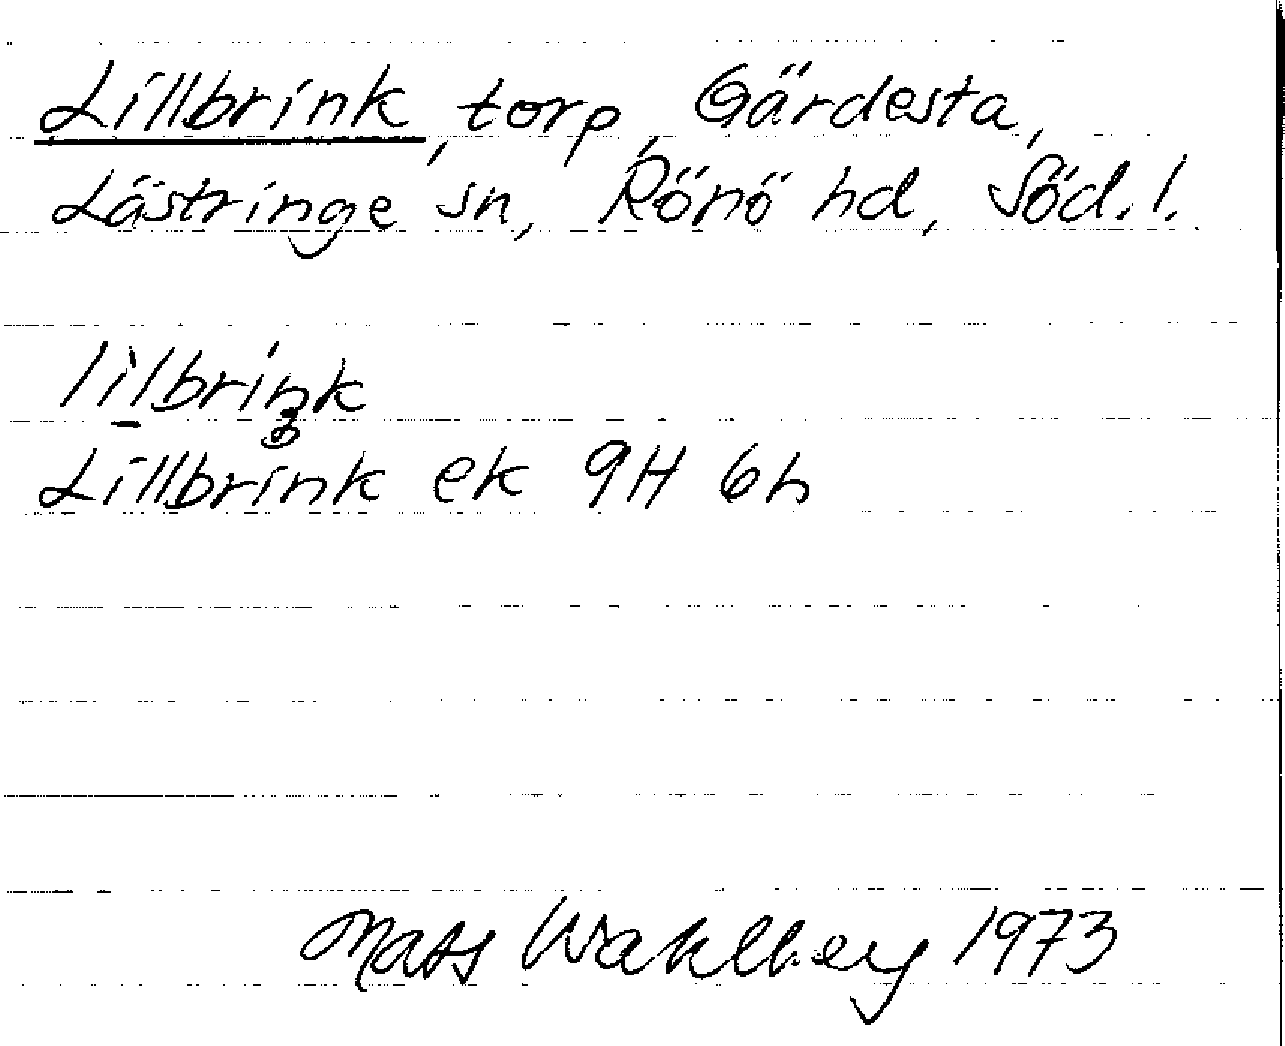 Lillbrink, torp, Gärdesta,
Lästringe sn, Rönö hd, Söd.l.
lìlbriŋk
Lillbrink ek 9H 6h
Mats Wahlberg 1973